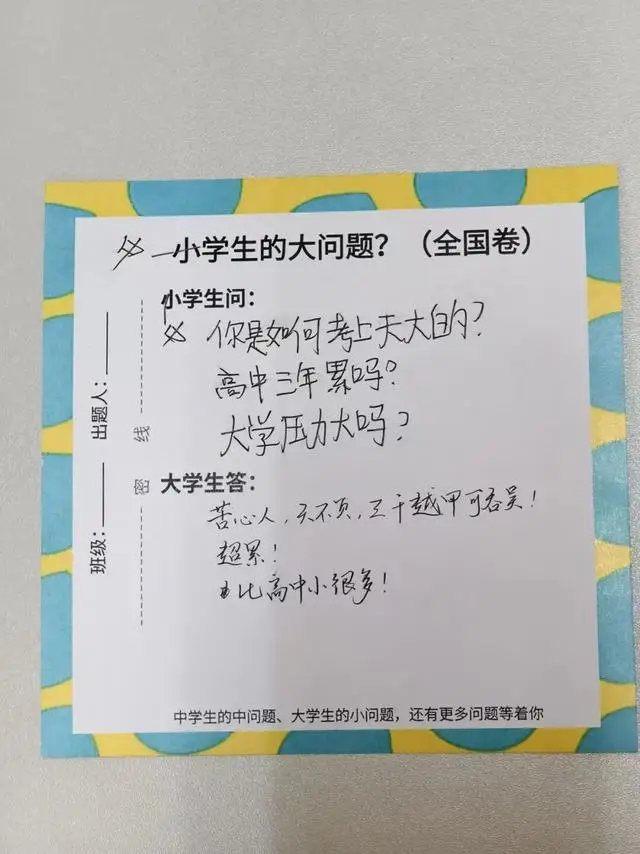 小学生的大问题？（全国卷）
小学生问：
你是如何考上天大的？
高中三年累吗？
大学压力大吗？
大学生答：
苦心人，天不负，三千越甲可吞吴！
超累！
比高中小很多！
班级：______ 出题人：______
密 线
中学生的中问题、大学生的小问题，还有更多问题等着你